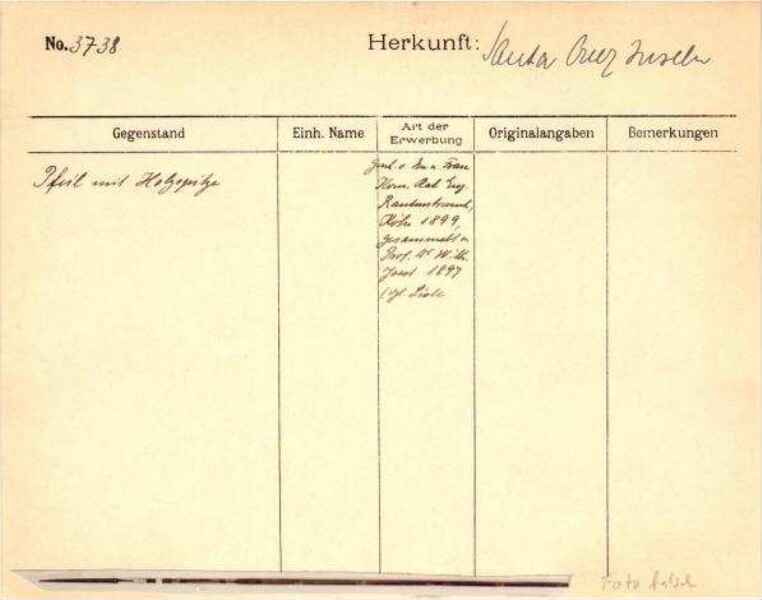 No. 3738
Herkunft: Santa Cruz Inseln
Gegenstand
Einh. Name
Art der Erwerbung
Originalangaben
Bemerkungen
Pfeil mit Holzspitze
Gesch. v. Frau
Kom. Rat Eug.
Rautenstrauch,
Köln 1899,
gesammelt v.
Prof. Dr Wilh.
Joest 1897
Foto falsch